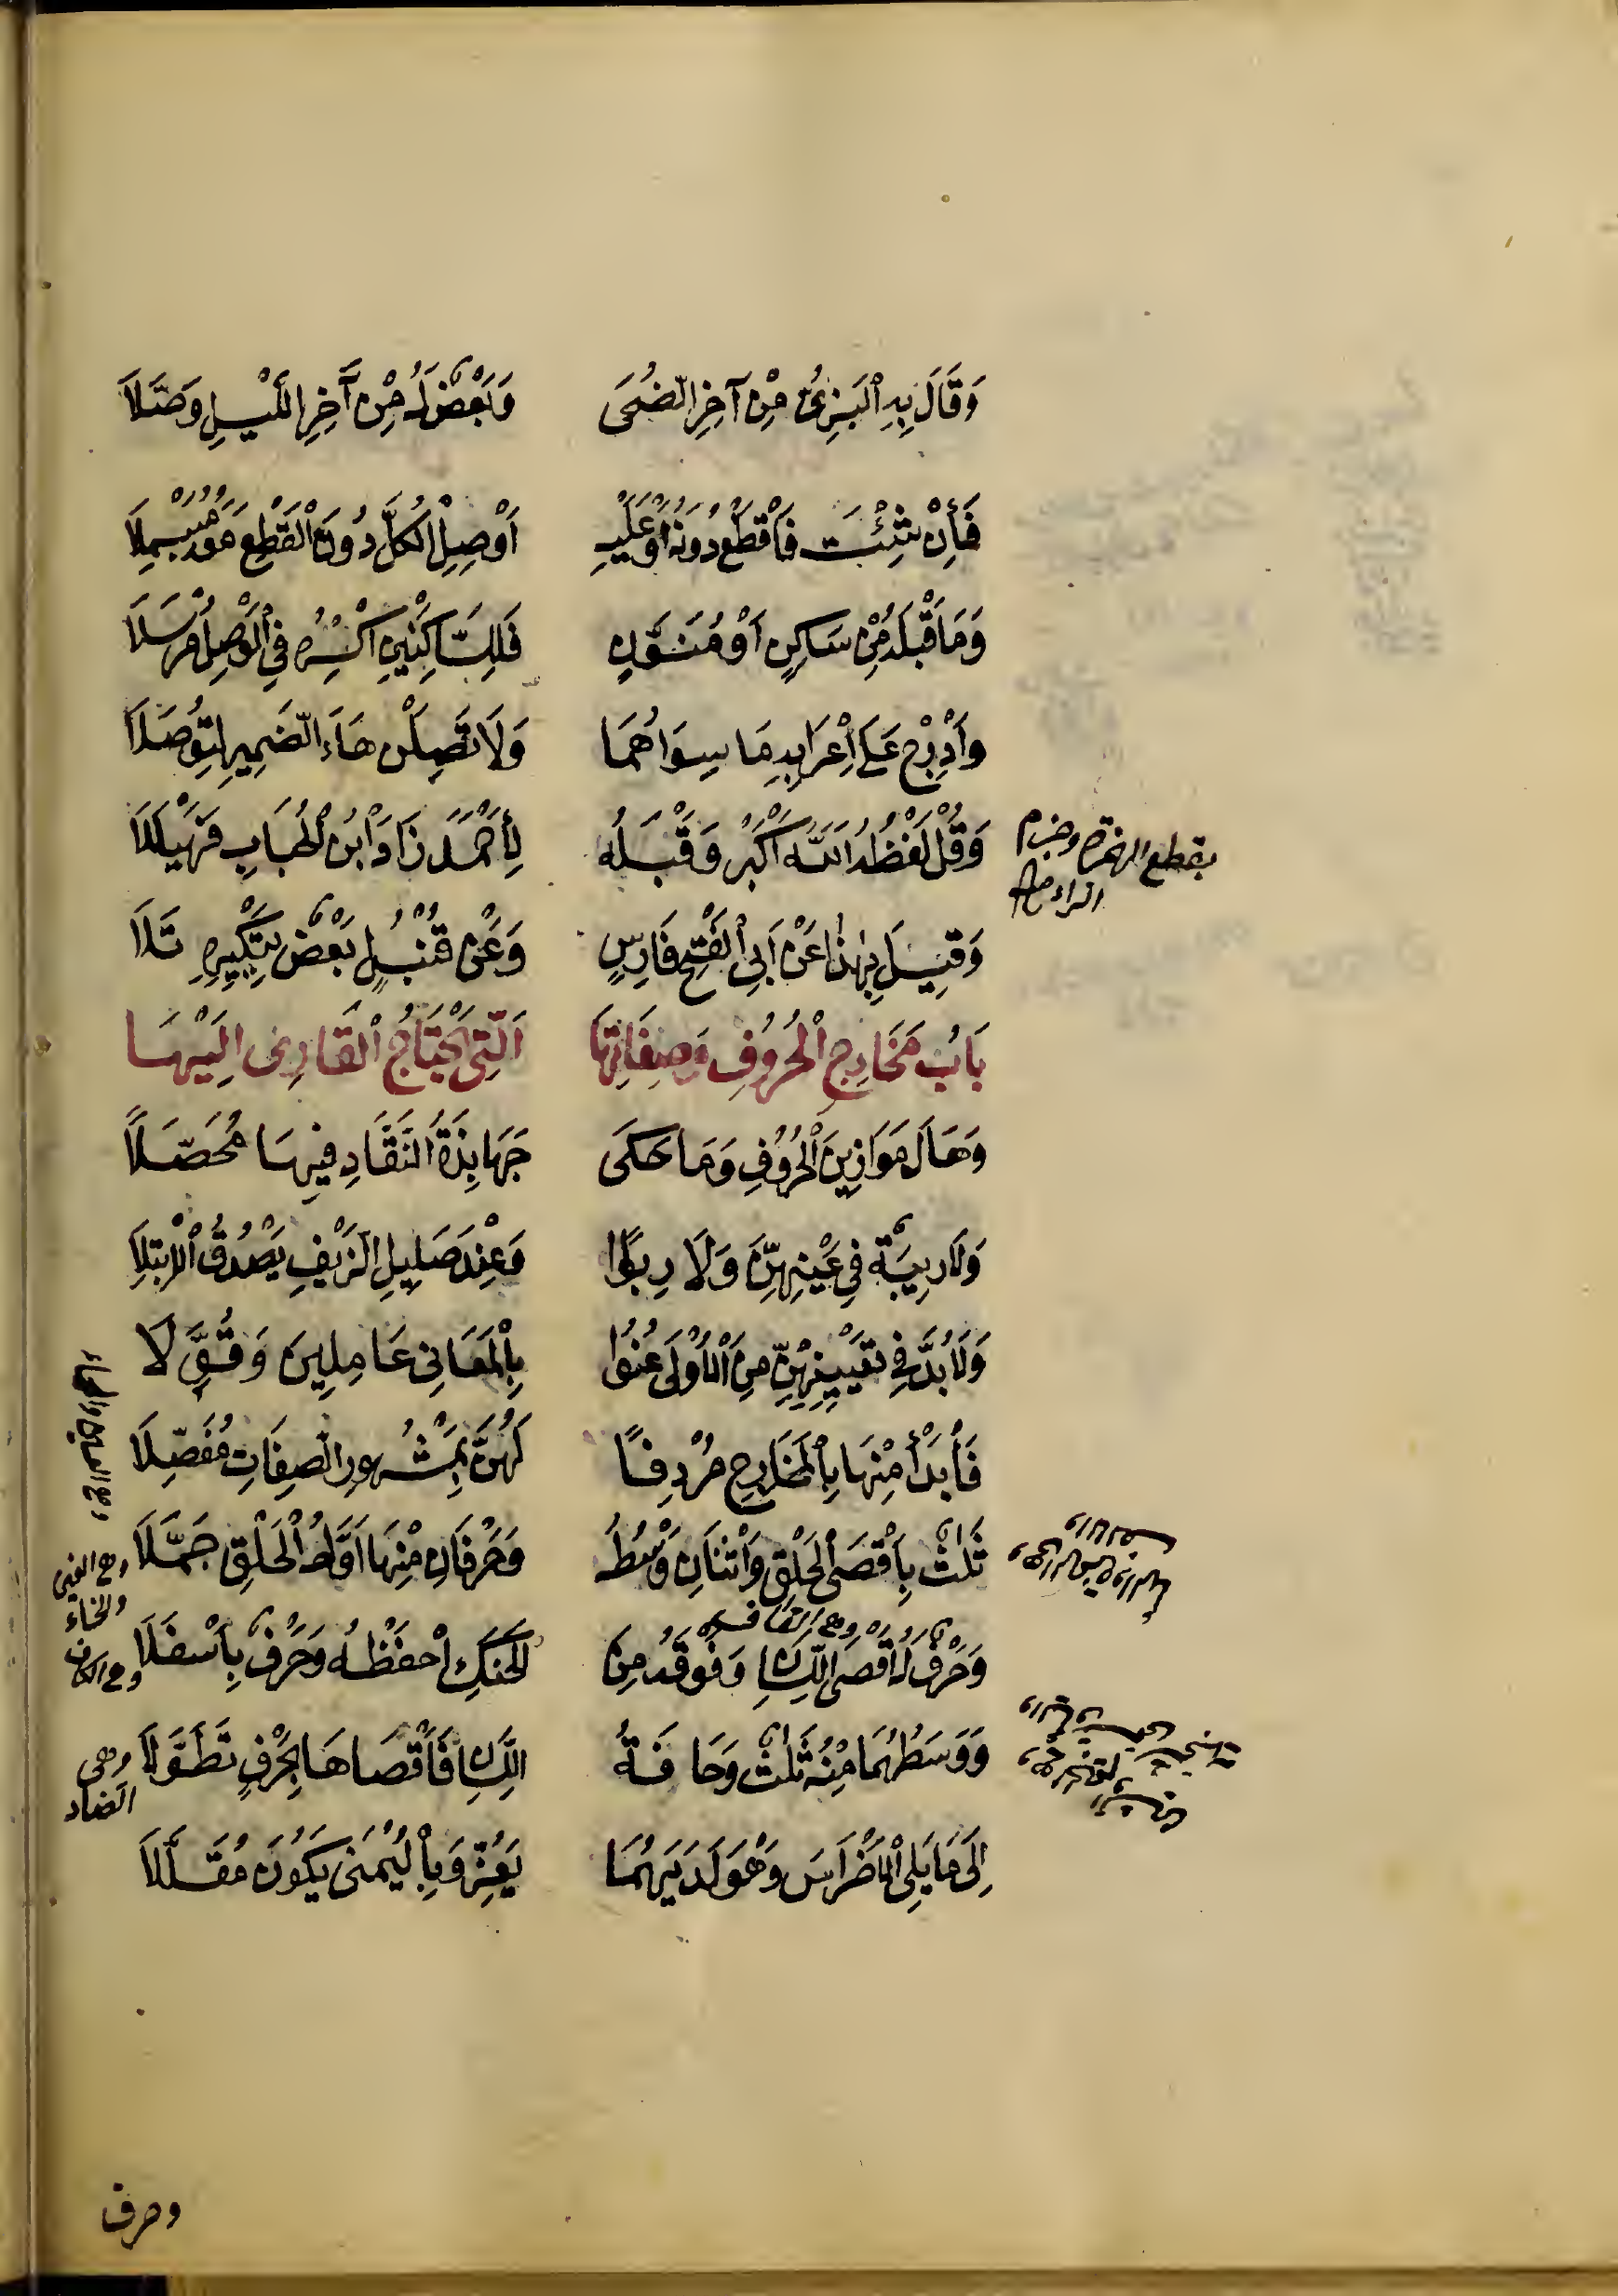 وَقَالَ بِهِ الْبَزِّيُّ مِنْ آخِرِ الضُّحَى وَبَعْضٌ لَهُ مِنْ آخِرِ اللَّيْلِ وَصَّلَا
فَإِنْ شِئْتَ فَاقْطَعْ دُونَهُ أَوْ عَلَيْهِ أَوْ صِلِ الْكُلَّ دُونَ الْقَطْعِ مَعْهُ مُبَسْمِلَا
وَمَا قَبْلَهُ مِنْ سَاكِنٍ أَوْ مُنَوَّنٍ فَلِلسَّاكِنَيْنِ اكْسِرْهُ فِي الْوَصْلِ مُرْسَلَا
وَأَدْرِجْ عَلَى إِعْرَابِهِ مَا سِوَاهُمَا وَلَا تَصِلَنْ هَاءَ الضَّمِيرِ لِتُوصَلَا
وَقُلْ لَفْظُهُ اللَّهُ أَكْبَرْ وَقَبْلَهُ لِأَحْمَدَ زَادَ ابْنُ الْحُبَابِ فَهَيْلَلَا
بقطع الهمزة وجزم
الراء صح
وَقِيلَ بِهٰذَا عَنْ أَبِي الْفَتْحِ فَارِسٍ وَعَنْ قُنْبُلٍ بَعْضٌ بِتَكْبِيرِهِ تَلَا
بَابُ مَخَارِجِ الْحُرُوفِ وَصِفَاتِهَا الَّتِي يَحْتَاجُ الْقَارِئُ إِلَيْهَا
وَهَاكَ مَوَازِينَ الْحُرُوفِ وَمَا حَكَى جَهَابِذَةُ النُّقَّادِ فِيهَا مُحَصَّلَا
وَلَا رِيبَةٌ فِي عَيْنِهِنَّ وَلَا رِبًا وَعِنْدَ صَلِيلِ الزَّيْفِ يَصْدُقُ الِابْتِلَا
وَلَا بُدَّ فِي تَعْيِينِهِنَّ مِنَ الْأُولَى عُنُوا بِالْمَعَانِي عَامِلِينَ وَقُوَّلَا
فَابْدَأْ مِنْهَا بِالْمَخَارِجِ مُرْدِفًا لَهُنَّ بِمَشْهُورِ الصِّفَاتِ مُفَصِّلَا
ثَلٰثٌ بِأَقْصَى الْحَلْقِ وَاثْنَانِ وَسْطَهُ وَحَرْفَانِ مِنْهَا أَوَّلَ الْحَلْقِ جَمَّلَا
وهي الغين
والخاء
وهي القاف
وَحَرْفٌ لَهُ أَقْصَى اللِّسَانِ وَفَوْقَهُ مِنَ الْحَنَكِ احْفَظْهُ وَحَرْفٌ بِأَسْفَلَا
وهي الكاف
وَوَسْطُهُمَا مِنْهُ ثَلٰثٌ وَحَافَةُ اللِّسَانِ فَأَقْصَاهَا بِحَرْفٍ تَطَوَّلَا
وهي
الضاد
إِلَى مَا يَلِي الْأَضْرَاسَ وَهْوَ لَدَيْهِمَا يَعِزُّ وَبِالْيُمْنَى يَكُونُ مُقَلَّلَا
وحرف